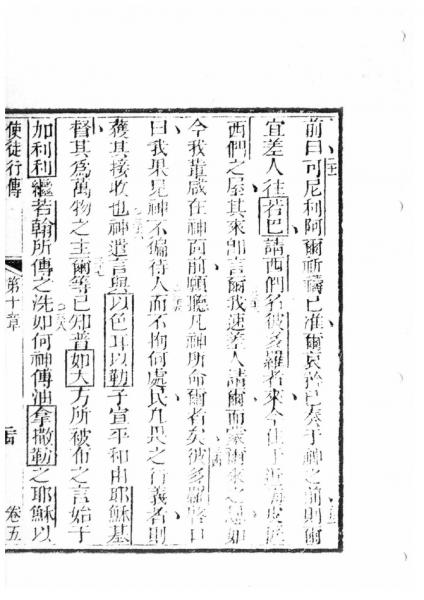 前曰可尼利阿爾祈禱已准爾哀矜已奏于神之前則爾
宜差人往若巴請西們名彼多羅者來今住于近海處
西們之屋其來即言爾我速差人請爾而蒙爾來之恩如
今我輩咸在神面前願聽凡神所命爾者矣彼多羅啓口
曰我果見神不偏待人而不拘何處民凡畏之行義者則
獲其接收也神遣言與以色耳以勒子宣平和由耶穌基
督其為萬物之主爾等已知普如大方所被布之言始于
加利利繼若翰所傳之洗如何神傅油拿撒勒之耶穌以
使徒行傳
第十章
卷五